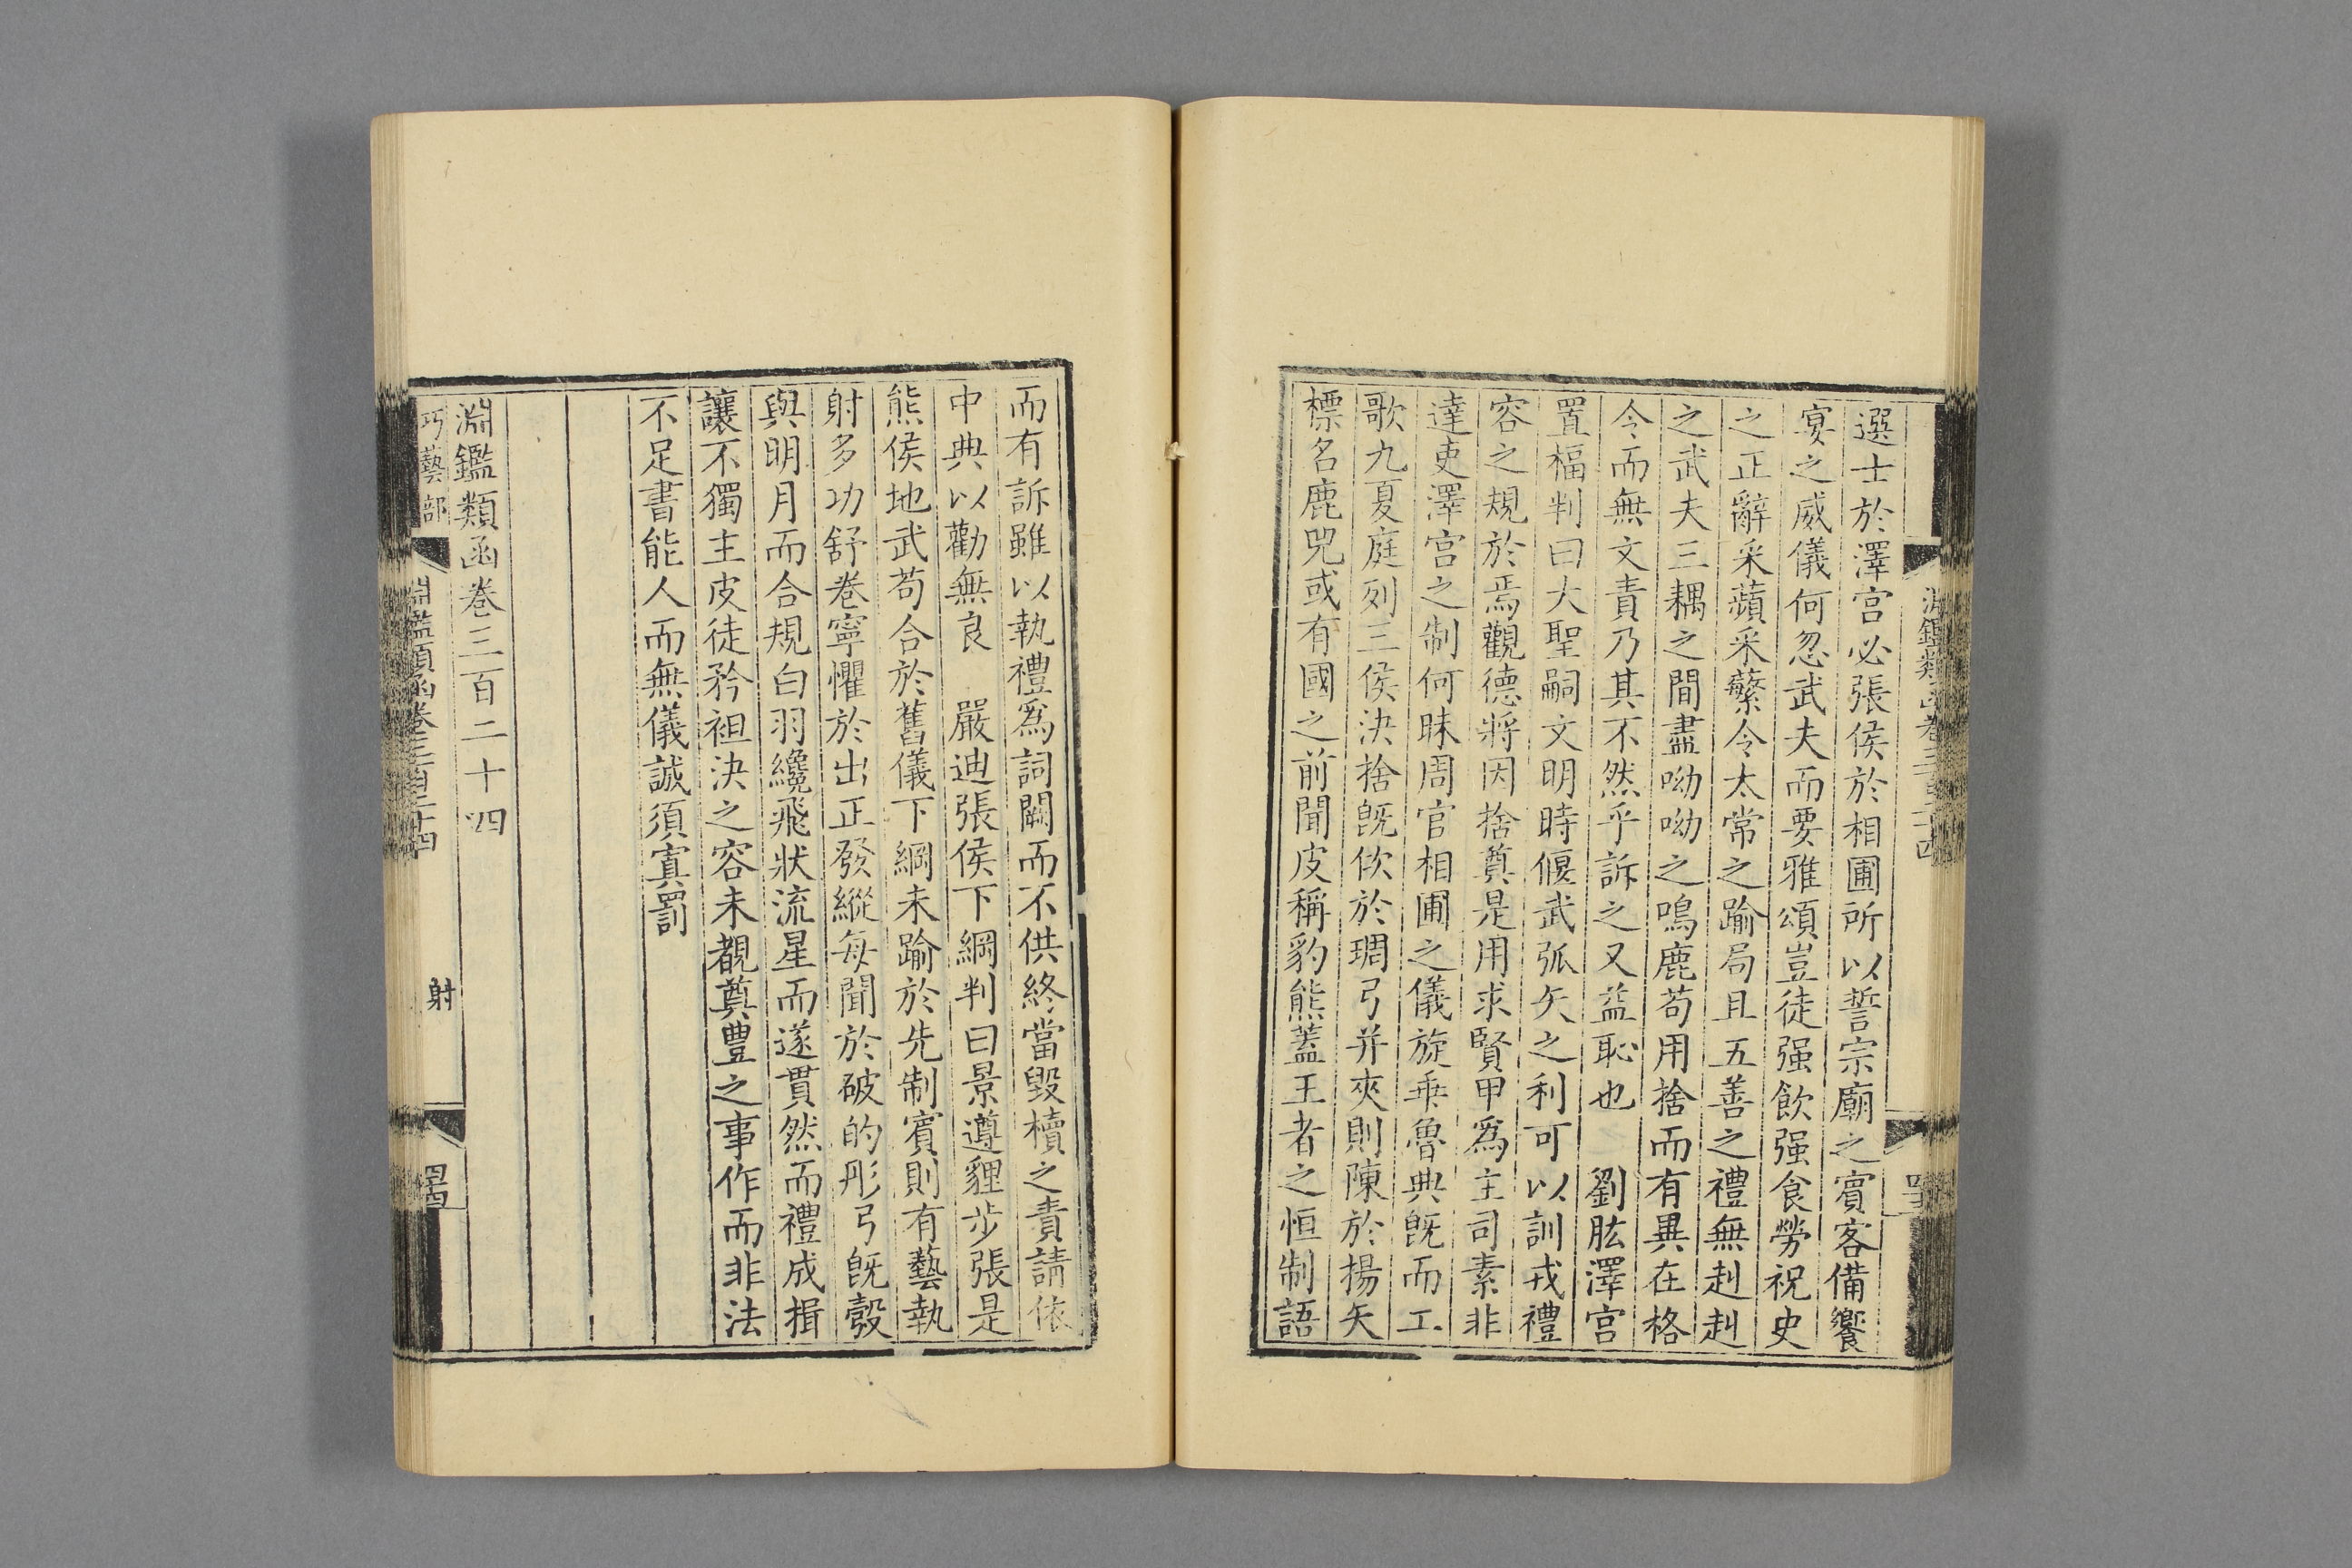 選士於澤宮必張侯於相圃所以誓宗廟之賓客備饗
宴之威儀何忽武夫而要雅頌豈徒强飲强食勞祝史
之正辭采蘋采蘩令太常之踰局且五善之禮無赳赳
之武夫三耦之間盡呦呦之鳴鹿苟用捨而有異在格
令而無文責乃其不然乎訴之又益恥也　劉肱澤宮
置楅判曰大聖嗣文明時偃武弧矢之利可以訓戎禮
容之規於焉觀德將因捨奠是用求賢甲爲主司素非
達吏澤宮之制何昧周官相圃之儀旋乖魯典旣而工
歌九夏庭列三侯決捨旣佽於琱弓并夾則陳於揚矢
標名鹿兕或有國之前聞皮稱豹熊蓋王者之恒制語
而有訴雖以執禮爲詞闕而不供終當毀櫝之責請依
中典以勸無良　嚴迪張侯下綱判曰景遵貍步張是
熊侯地武苟合於舊儀下綱未踰於先制賓則有藝執
射多功舒卷寧懼於出正發縱每聞於破的彤弓旣彀
與明月而合規白羽纔飛狀流星而遂貫然而禮成揖
讓不獨主皮徒矜袒決之容未覩奠豐之事作而非法
不足書能人而無儀誠須寘罰
淵鑑類函卷三百二十四
巧藝部
淵鑑類函卷三百二十四
射